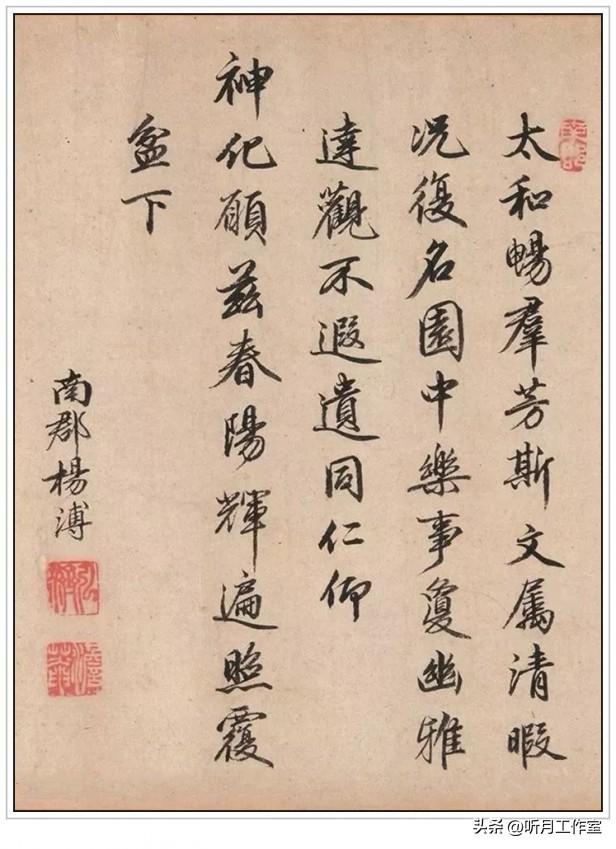 太和暢羣芳斯文属清暇
况復名園中樂事夐幽雅
達觀不遐遺同仁仰
神化願茲春陽輝遍照覆
盆下
南郡楊溥
头条 @听月工作室